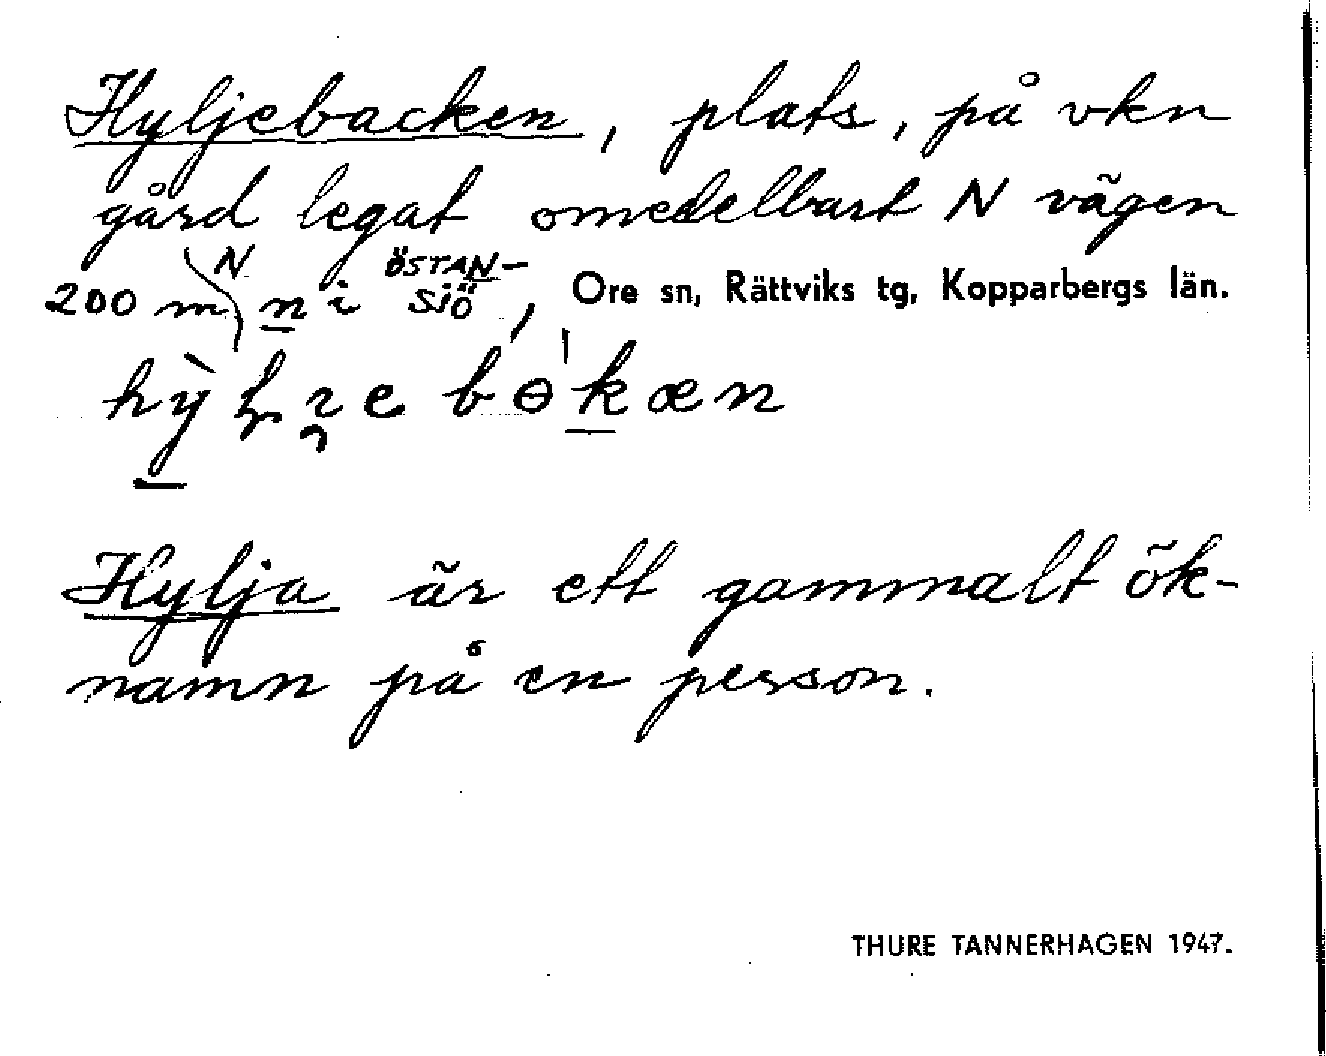 Hyljebacken, plats, på vkn
gård legat omedelbart N vägen
200 m N n i ÖSTANSJÖ, Ore sn, Rättviks tg, Kopparbergs län.
Hylja är ett gammalt ök-
namn på en person.
THURE TANNERHAGEN 1947.